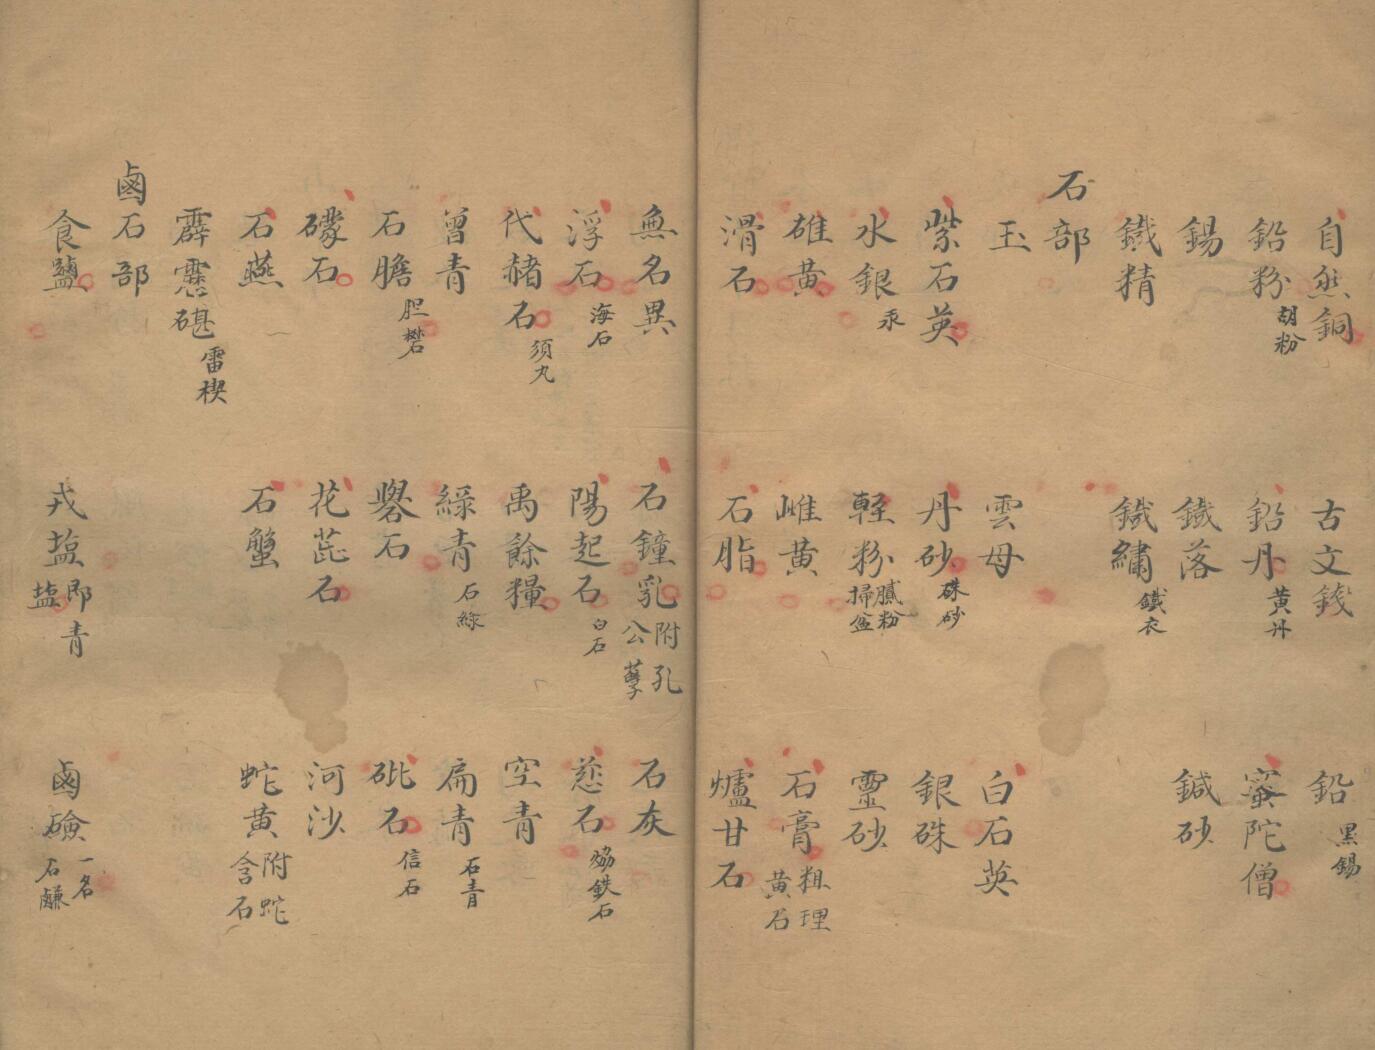 自然銅 古文錢 鉛 黑錫
鉛粉 胡粉 鉛丹 黃丹 蜜陀僧
錫 鐵落 鍼砂
鐵精 鐵繡 鐵衣
石部
玉 雲母 白石英
紫石英 丹砂 硃砂 銀硃
水銀 汞 輕粉 膩粉 掃盆 靈砂
雄黃 雌黃 石膏 粗理黃石
滑石 石脂 爐甘石
無名異 石鐘乳 附孔公孽 石灰
浮石 海石 陽起石 白石 慈石 鉄石
代赭石 須丸 禹餘糧 空青
曾青 綠青 石綠 扁青 石青
石膽 胆礬 礜石 砒石 信石
礞石 花蕊石 河沙
石燕 石蟹 蛇黃 附蛇含石
霹靂碪 雷楔
鹵石部
食鹽 戎塩 即青塩 鹵鹼 一名石鹻